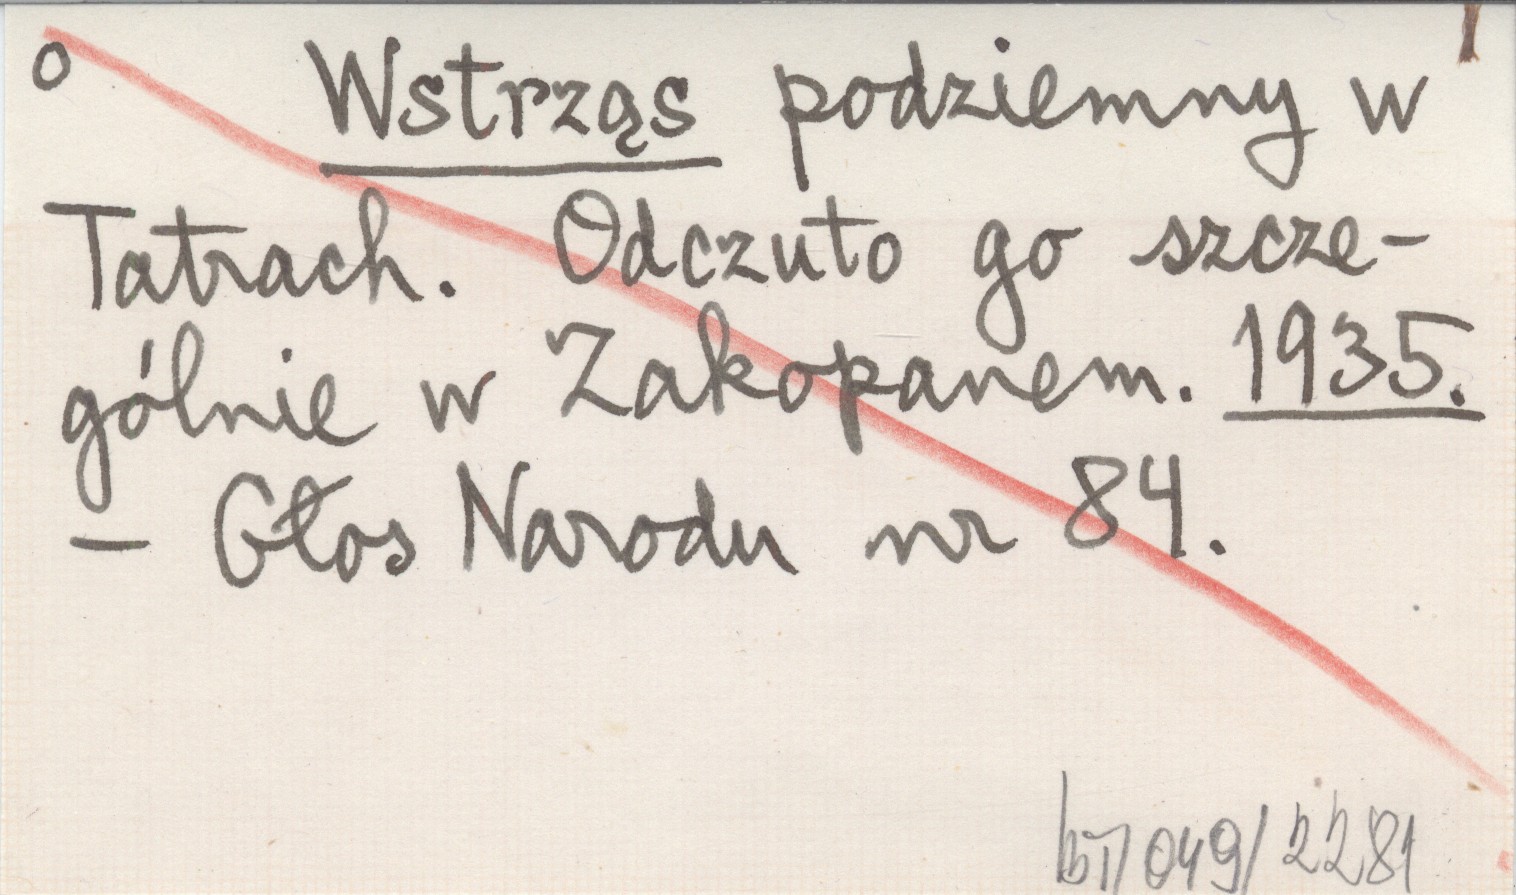 o Wstrząs podziemny w
Tatrach. Odczuto go szcze-
gólnie w Zakopanem. 1935.
- Głos Narodu nr 84.
bT/049/2281